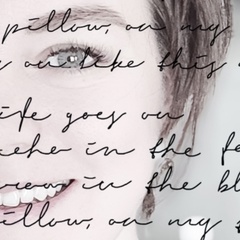 pillow, on my
on like this
life goes on
in the fe
in the bl
illow, on my